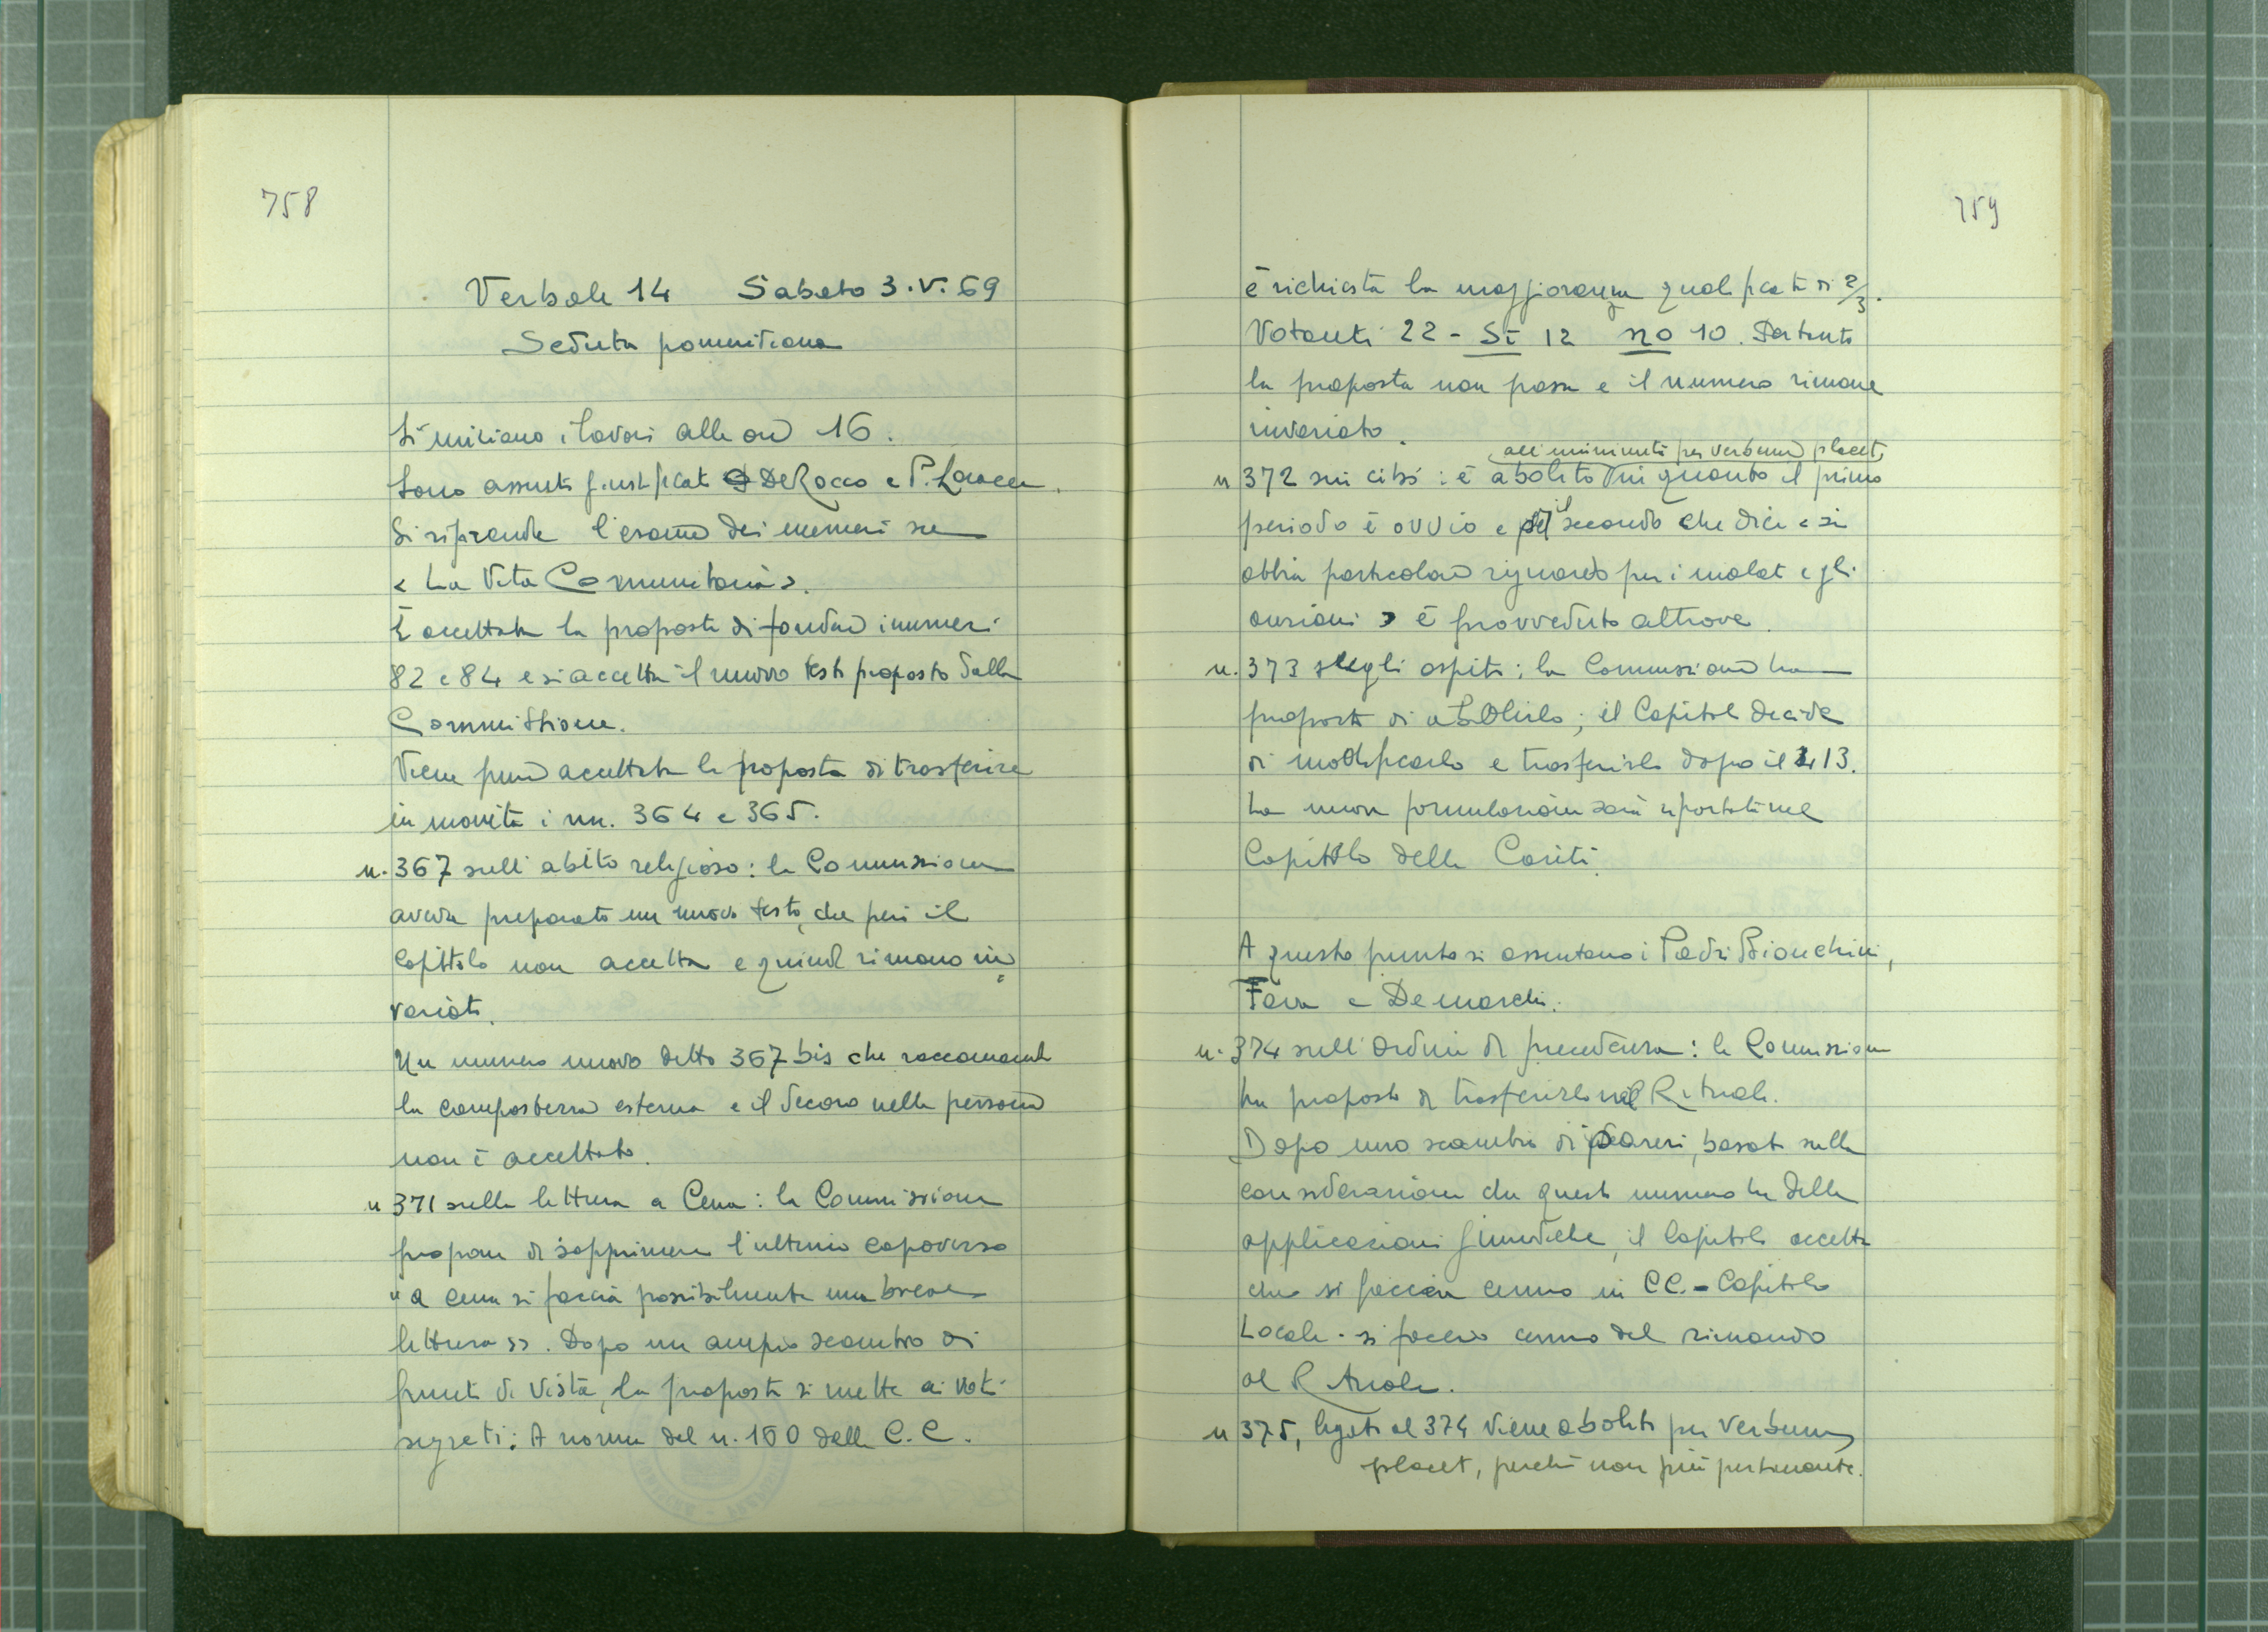 758
Verbale 14 Sabato 3.V.69
Seduta pomeridiana
Si iniziano i lavori alle ore 16.
Sono assenti giustificati De Rocco e P.
Si riprende l'esame dei numeri su
« La Vita Comunitaria ».
È accettata la proposta di fondere i numeri
82 e 84 e si accetta il nuovo testo proposto dalla
Commissione.
Viene pure accettata la proposta di trasferire
in novità i nn. 364 e 365.
n. 367 sull'abito religioso: la Commissione
aveva preparato un nuovo testo, che però il
Capitolo non accetta e quindi rimane in=
variato.
Un numero nuovo detto 367 bis che raccomanda
la compostezza esterna e il decoro nella persona
non è accettato.
n 371 sulla lettura a Cena: la Commissione
propone di sopprimere l'ultimo capoverso
"a cena si faccia possibilmente una breve
lettura ». Dopo un ampio scambio di
punti di vista, la proposta si mette ai voti
segreti: A norma del n. 150 delle C.C.
759
è richiesta la maggioranza qualificata di 2/3.
Votanti 22 - Sì 12 no 10. Pertanto
la proposta non passa e il numero rimane
invariato.
all'unanimità per verbum placet,
n 372 sui cibi: è abolito in quanto il primo
periodo è ovvio e il secondo che dice « si
abbia particolare riguardo per i malati e gli
anziani » è provveduto altrove.
n. 373 sugli ospiti: la Commissione ha
proposto di abolirlo; il Capitolo decide
di modificarlo e trasferirlo dopo il 413.
La nuova formulazione sarà riportata nel
Capitolo della Carità.
A questo punto si assentano i Padri Bianchini,
Fava e De marchi.
n. 374 sull'Ordine di precedenza: la Commissione
ha proposto di trasferirlo nel Rituale.
Dopo uno scambio di pareri, basato sulla
considerazione che questo numero ha delle
applicazioni giuridiche, il Capitolo accetta
che si faccia cenno in CC. - Capitolo
Locale - si faccia cenno del rimando
al Rituale.
n 375, legato al 374 viene abolito per verbum
placet, perché non più pertinente.